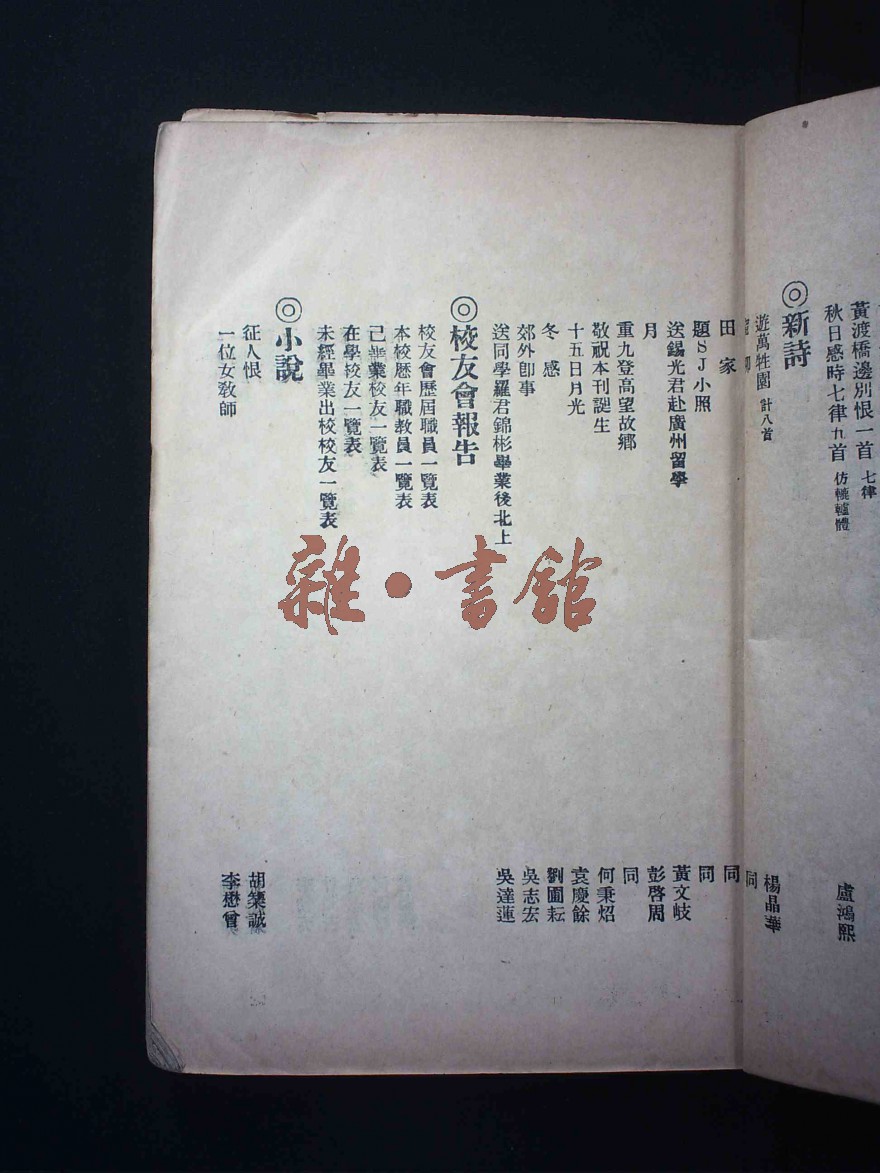 黃渡橋邊別恨一首 七律
秋日感時七律九首 仿轆轤體 盧鴻熙
◎新詩
遊萬牲園 計八首 楊晶華
同
田家 同
題SJ小照 同
送錫光君赴廣州留學 黃文岐
月 彭啓周
重九登高望故鄉 同
敬祝本刊誕生 何秉炤
十五日月光 袁慶餘
冬感 劉圃耘
郊外卽事 吳志宏
送同學羅君錦彬畢業後北上 吳達蓮
◎校友會報告
校友會歷屆職員一覽表
本校歷年職教員一覽表
已畢業校友一覽表
在學校友一覽表
未經畢業出校校友一覽表
◎小說
征人恨 胡築誠
一位女教師 李懋曾
雜·書館